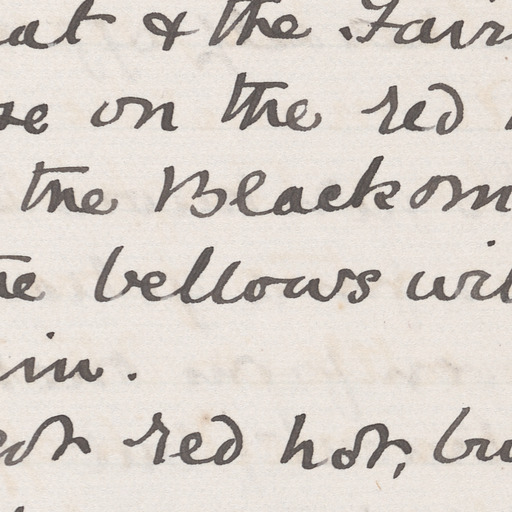 at & the Fair
se on the red
the Blacksm
he bellows wil
in.
got red hot, bu